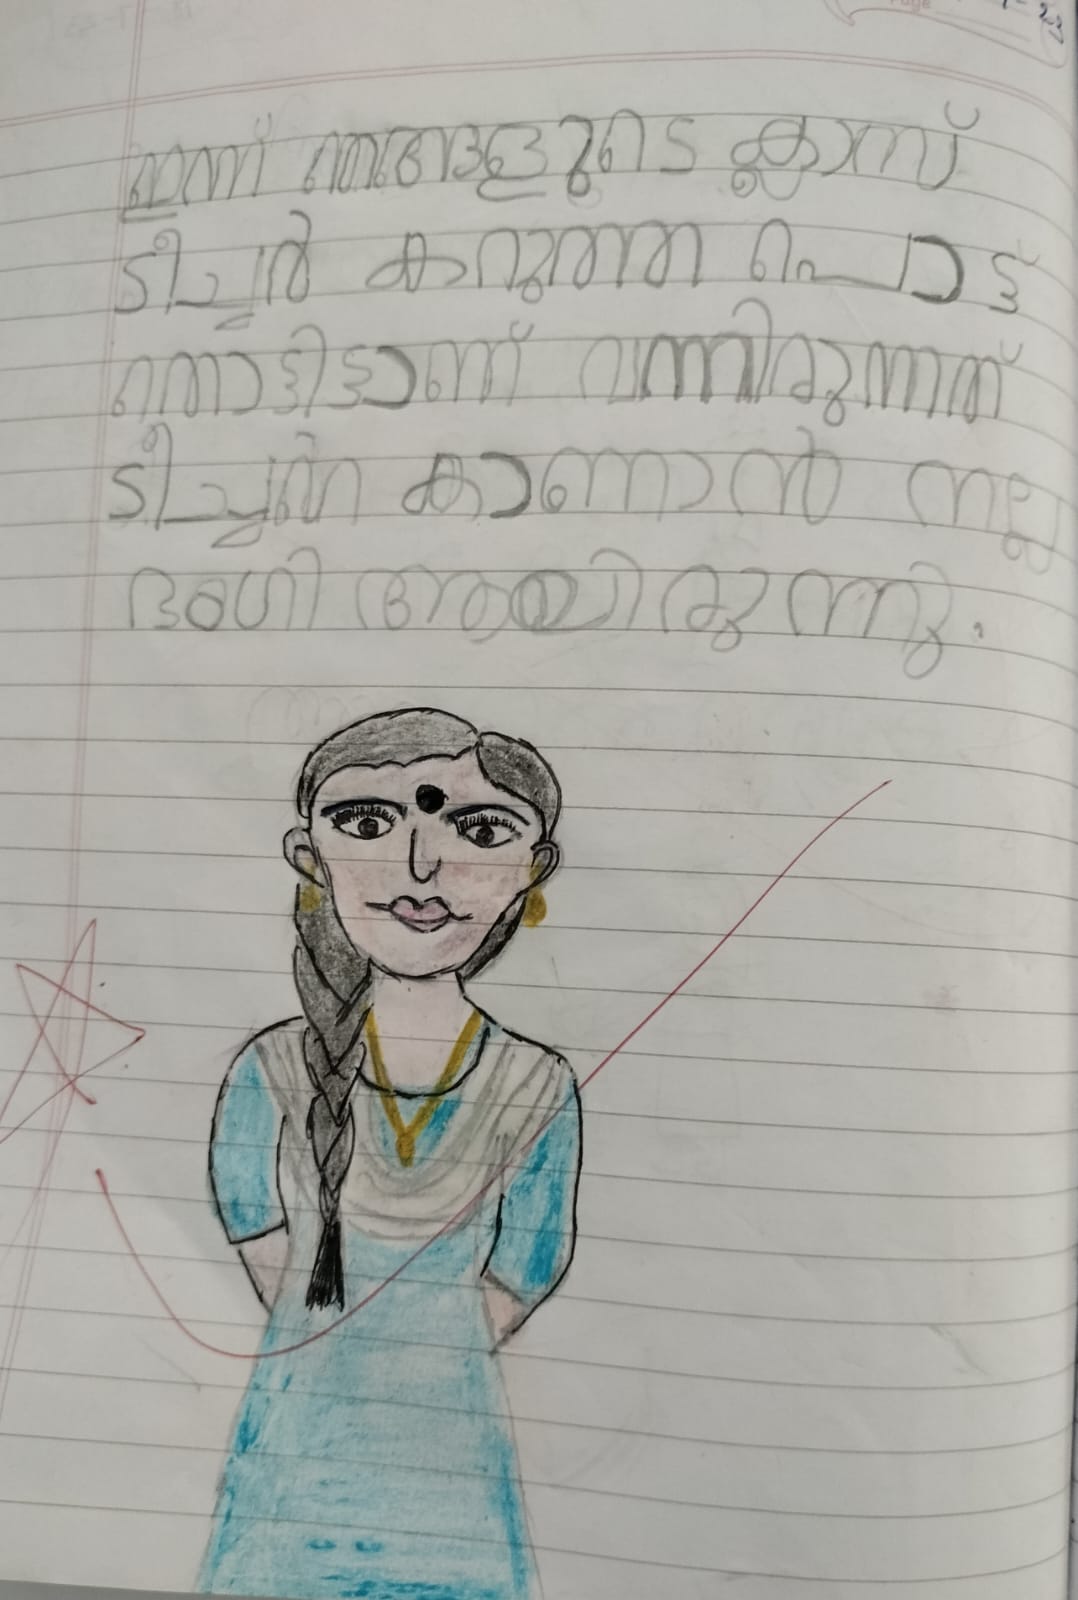 ഇന്ന് ഞങ്ങളുടെ ക്ലാസ്സ്
ടീച്ചർ കറുത്ത പൊട്ട്
തൊട്ടിട്ടാണ് വന്നിരുന്നത്
ടീച്ചറെ കാണാൻ നല്ല
ഭംഗി ആയിരുന്നു.